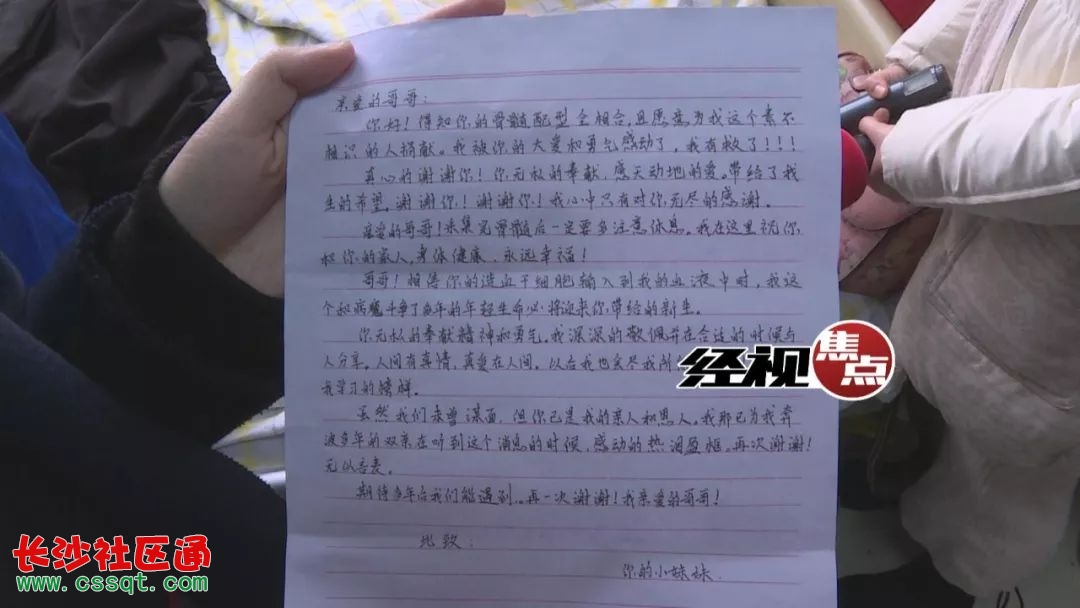 亲爱的哥哥：
你好！得知你的骨髓配型全相合，且愿意为我这个素不
相识的人捐献。我被你的大爱和勇气感动了，我有救了！！！
真心的谢谢你！你无私的奉献，感天动地的爱。带给了我
生的希望。谢谢你！谢谢你！我心中只有对你无尽的感谢。
亲爱的哥哥！采集完骨髓后一定要多注意休息。我在这里祝你
和你的家人，身体健康、永远幸福！
哥哥！相信你的造血干细胞输入到我的血液中时，我这
个和病魔斗争了多年的年轻生命必将迎来你带给的新生。
你无私的奉献精神和勇气，我深深的敬佩并在合适的时候与
人分享。人间有真情，真爱在人间。以后我也会尽我所
我学习的榜样。
虽然我们未曾谋面，但你已是我的亲人和恩人。我那已为我奔
波多年的双亲在听到这个消息的时候，感动的热泪盈框。再次谢谢！
无以言表。
期待多年后我们能遇到。再一次谢谢！我亲爱的哥哥！
此致：
你的小妹妹.
经视
焦点
长沙社区通
www.cssqt.com